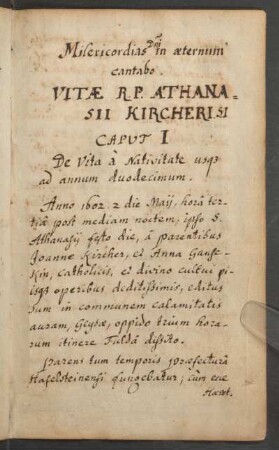 Misericordias Dni in æternum
cantabo.
VITÆ R. P. ATHANA=
SII KIRCHERI SI
CAPUT I
De Vita à Nativitate usq3
ad annum duodecimum.
Anno 1602 2 die Maij, horâ ter=
tiâ post mediam noctem, ipso S.
Athanasij festo die, â parentibus
Joanne Kircher, et Anna Ganse=
kin, catholicis, et divino cultui pi=
isq3 operibus deditissimis, editus
sum in communem calamitatis
auram, Geysæ, oppido trium hora=
rum itinere Fuldâ dissito.
Parens tum temporis præfecturâ
Hafelsteinensi fungebatur; cùm eve